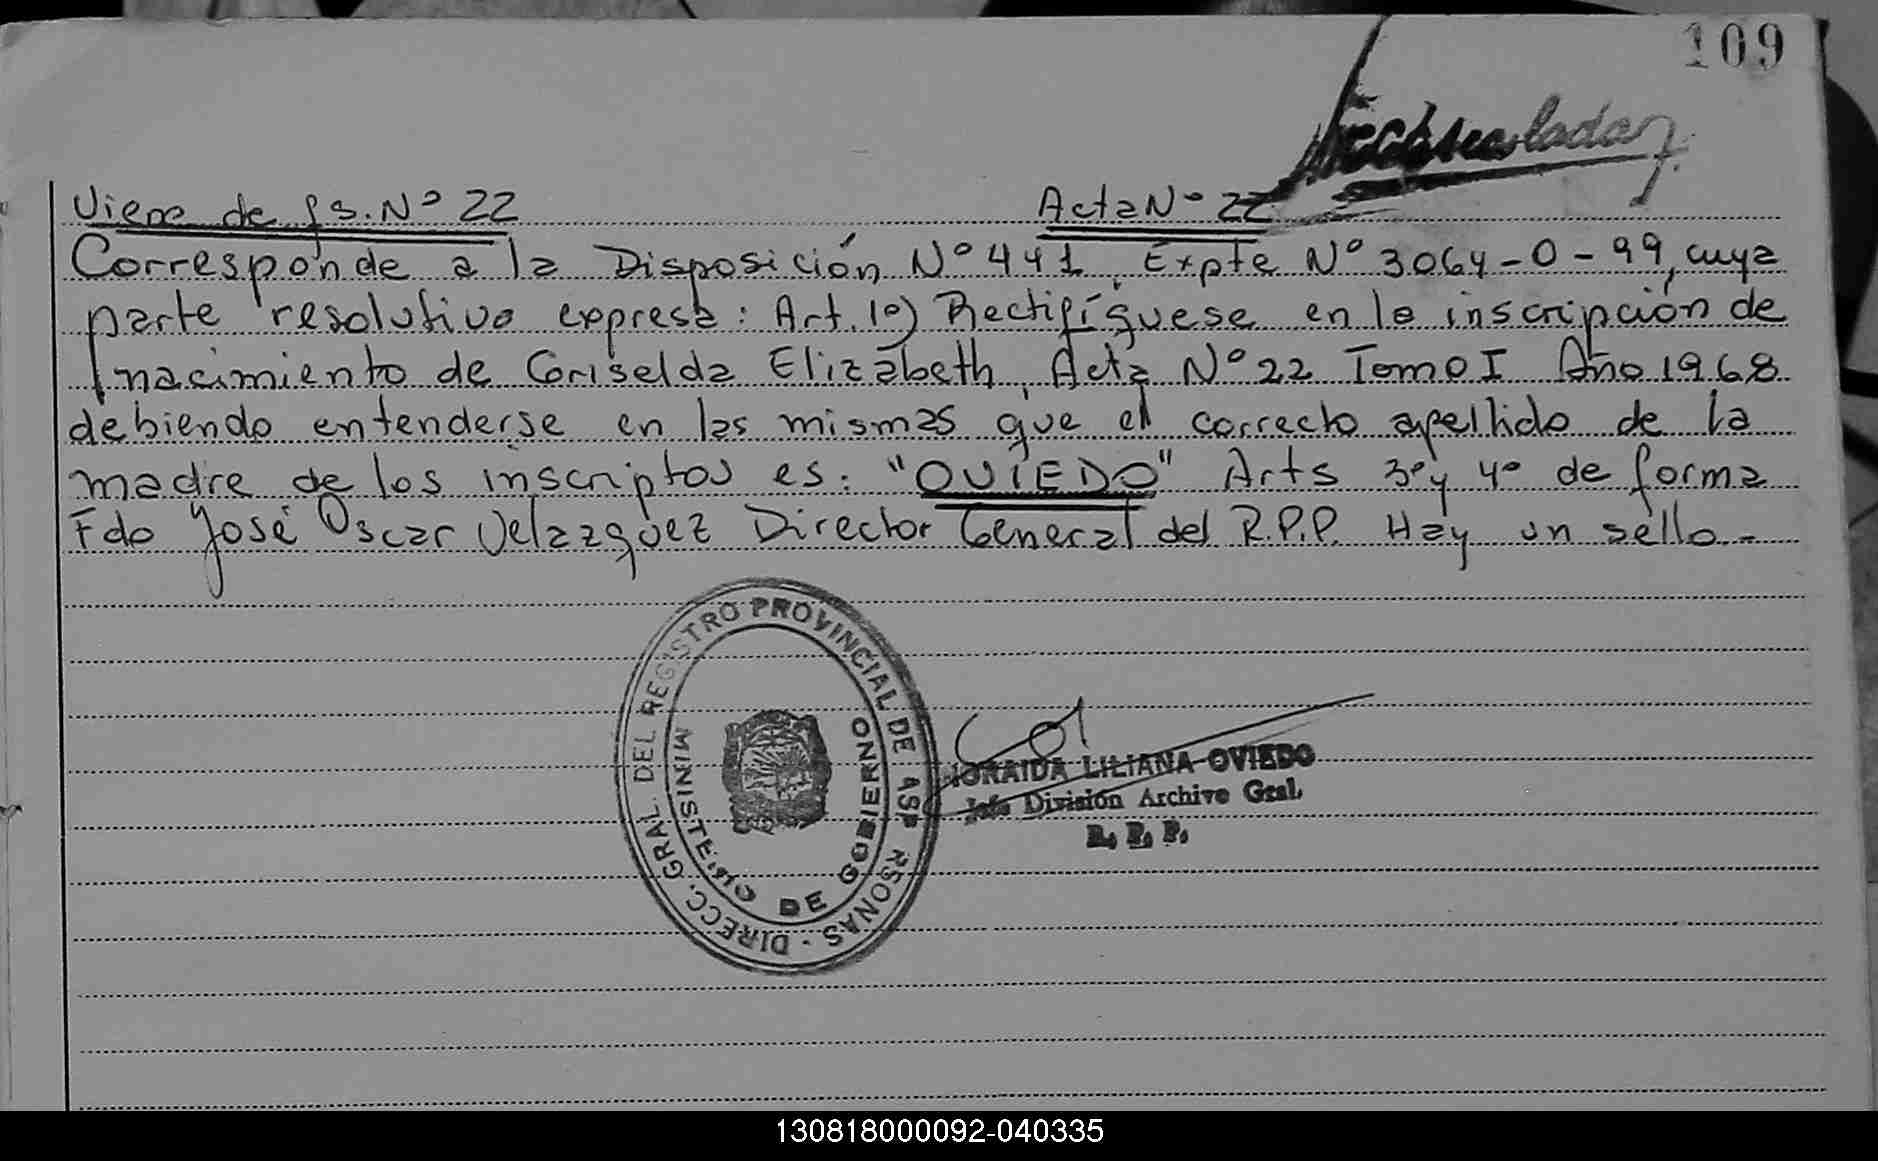 109
Viene de fs. Nº 22 Acta Nº 22
Corresponde a la Disposición Nº 441 Expte Nº 3064-0-99, cuya
parte resolutiva expresa: Art. 1º) Rectifíquese en la inscripción de
nacimiento de Griselda Elizabeth, Acta Nº 22 Tomo I Año 1968
debiendo entenderse en las mismas que el correcto apellido de la
madre de los inscriptos es: "OVIEDO" Arts 3º y 4º de forma
Fdo José Oscar Velazquez Director General del R.P.P. Hay un sello.-
DIRECC. GRAL. DEL REGISTRO PROVINCIAL DE LAS PERSONAS
MINISTERIO DE GOBIERNO
LILIANA OVIEDO
Jefe División Archivo Gral.
R. P. P.
130818000092-040335